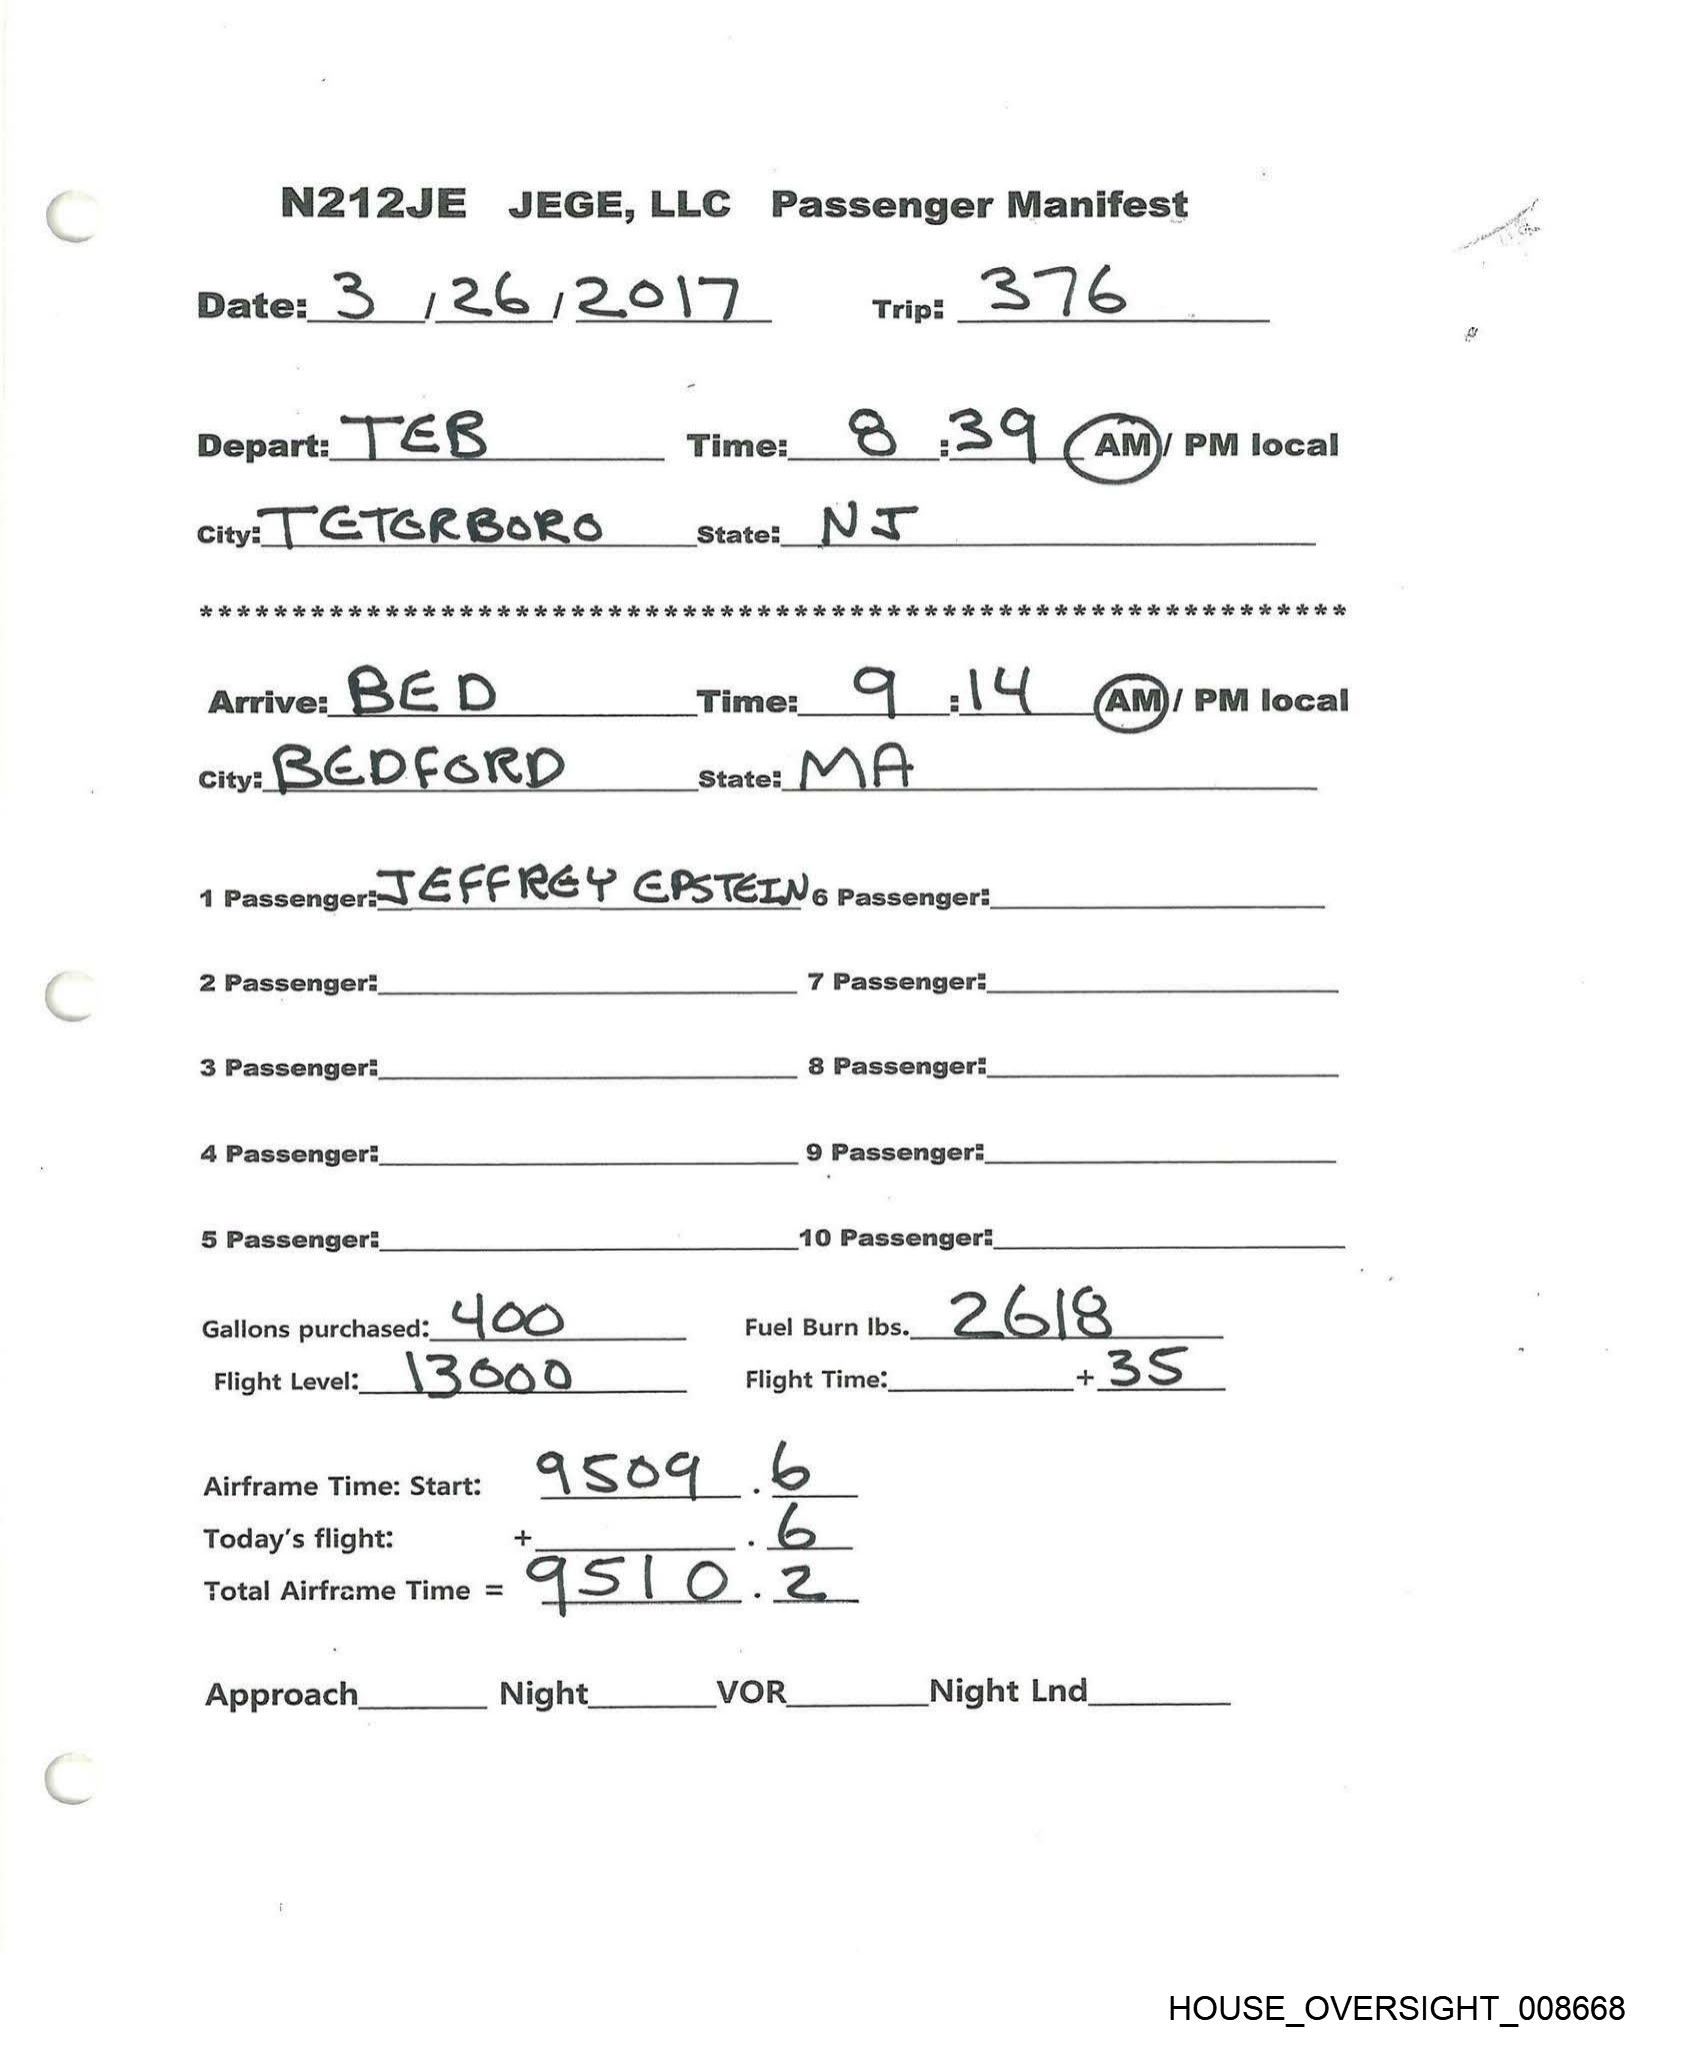 N212JE JEGE, LLC Passenger Manifest
Date: 3 / 26 / 2017 Trip: 376
Depart: TEB Time: 8 : 39 AM / PM local
City: TETERBORO State: NJ
**************************************************************
Arrive: BED Time: 9 : 14 AM / PM local
City: BEDFORD State: MA
1 Passenger: JEFFREY EPSTEIN 6 Passenger:
2 Passenger: 7 Passenger:
3 Passenger: 8 Passenger:
4 Passenger: 9 Passenger:
5 Passenger: 10 Passenger:
Gallons purchased: 400 Fuel Burn lbs. 2618
Flight Level: 13000 Flight Time: + 35
Airframe Time: Start: 9509 . 6
Today's flight: + . 6
Total Airframe Time = 9510 . 2
Approach Night VOR Night Lnd
HOUSE_OVERSIGHT_008668